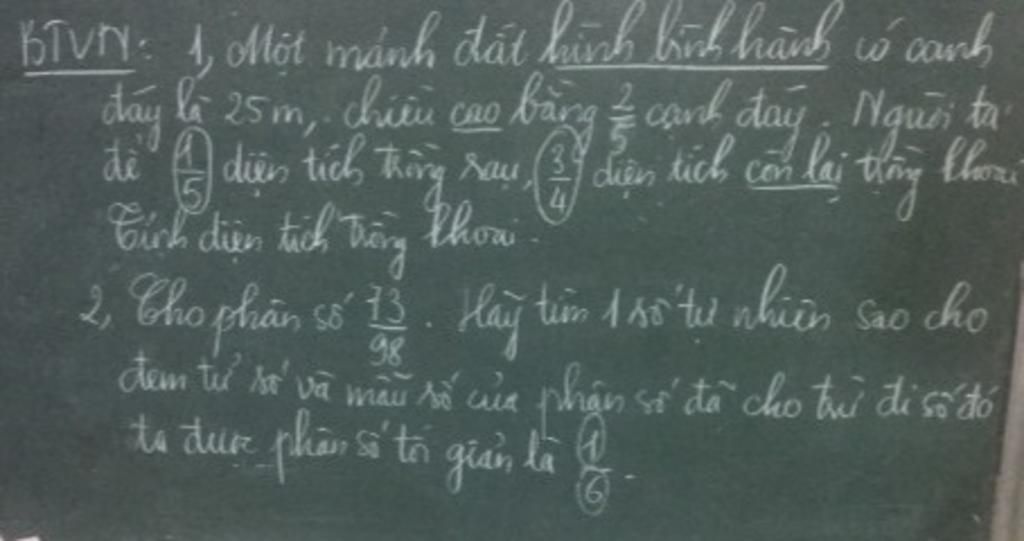 BTVN: 1, Một mảnh đất hình bình hành có cạnh
đáy là 25m, chiều cao bằng 2/5 cạnh đáy. Người ta
để 1/5 diện tích trồng rau, 3/4 diện tích còn lại trồng khoai
Tính diện tích trồng khoai.
2, Cho phân số 73/98. Hãy tìm 1 số tự nhiên sao cho
đem tử số và mẫu số của phân số đã cho trừ đi số đó
ta được phân số tối giản là 1/6.